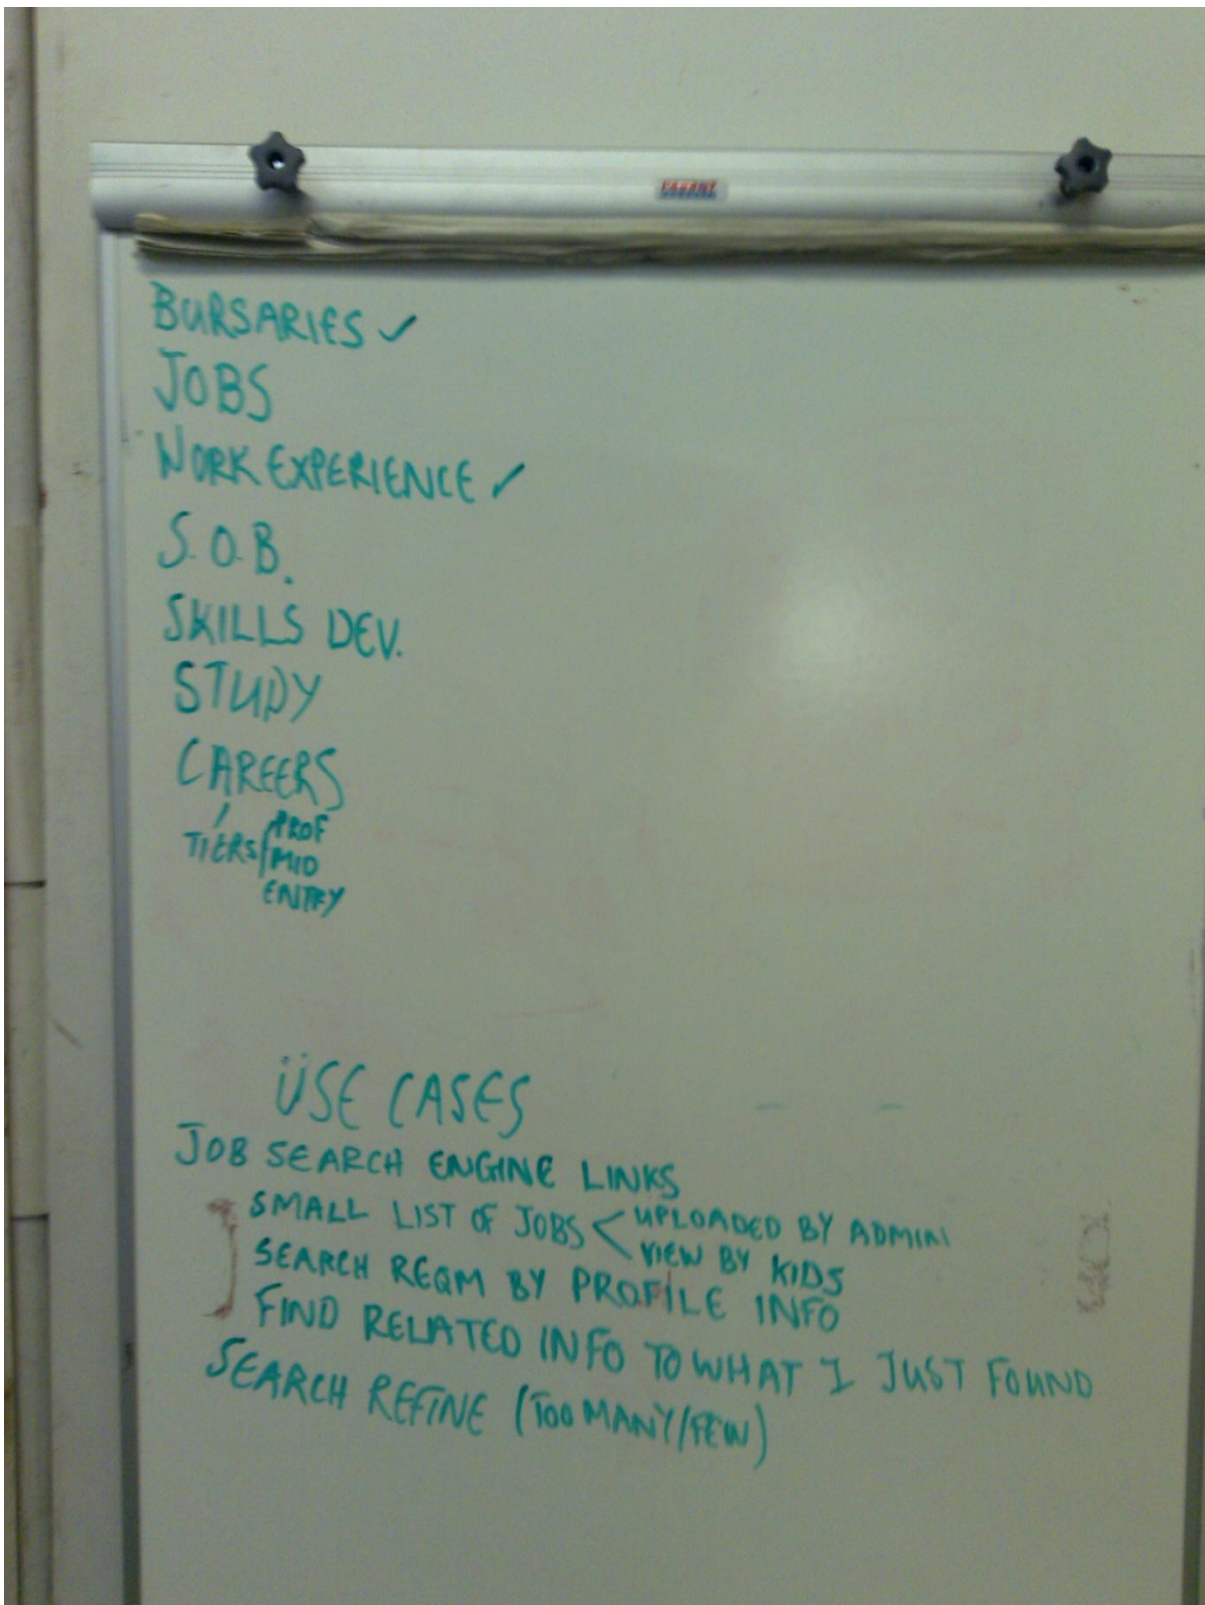 PARROT
BURSARIES ✓
JOBS
WORK EXPERIENCE ✓
S.O.B.
SKILLS DEV.
STUDY
CAREERS
PROF
TIERS MID
ENTRY
USE CASES
JOB SEARCH ENGINE LINKS
SMALL LIST OF JOBS < UPLOADED BY ADMIN
VIEW BY KIDS
SEARCH REQM BY PROFILE INFO
FIND RELATED INFO TO WHAT I JUST FOUND
SEARCH REFINE (TOO MANY/FEW)